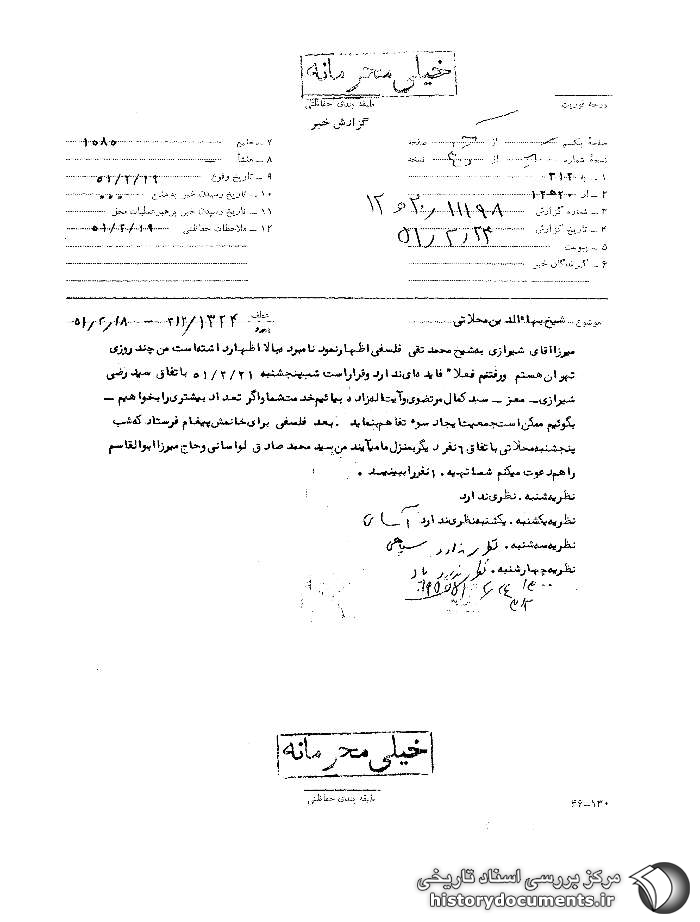 خیلی محرمانه
طبقه بندی حفاظتی
درجه فوریت
گزارش خبر
صفحه یکم از صفحه
نسخه شماره از نسخه
۱ ـ به ۳۱۲
۲ ـ از ۲۰ ه ۱۲
۳ ـ شماره گزارش ۱۱۱۹۸ / ۲۰ ه ۱۲
۴ ـ تاریخ گزارش ۵۱/۳/۲۳
۵ ـ پیوست
۶ ـ گیرندگان خبر
۷ ـ منبع ۱۰۸۵
۸ ـ منشأ
۹ ـ تاریخ وقوع ۵۱/۲/۱۹
۱۰ ـ تاریخ رسیدن خبر به منبع
۱۱ ـ تاریخ رسیدن خبر برهبر عملیات محل
۱۲ ـ ملاحظات حفاظتی ۵۱/۲/۱۹
موضوع ـ شیخ بهاءالدین محلاتی
عطف ۳۱۲/۱۳۲۴ ـ ۵۱/۲/۱۸
میرزا آقای شیرازی به شیخ محمد تقی فلسفی اظهار نمود نامبرده بالا اظهار داشته است من چند روزی
تهران هستم و رفتنم فعلا" فایده ای ندارد و قرار است شب پنجشنبه ۵۱/۲/۲۱ باتفاق سید رضی
شیرازی ـ معز ـ سید کمال مرتضوی و آیت اله زاده بیائیم خدمت شما و اگر تعداد بیشتری را بخواهیم ـ
بگوئیم ممکن است جمعیت ایجاد سوء تفاهم بنماید . بعد فلسفی برای خانمش پیغام فرستاد که شب
پنجشنبه محلاتی باتفاق ۶ نفر دیگر بمنزل ما میآیند من سید محمد صادق لواسانی و حاج میرزا ابوالقاسم
را هم دعوت میکنم شما تهیه ۱۰ نفر را ببینید .
نظریه شنبه . نظری ندارد
نظریه یکشنبه . یکشنبه نظری ندارد
نظریه سه شنبه . نظری ندارد
نظریه چهارشنبه . نظری ندارد
خیلی محرمانه
طبقه بندی حفاظتی
۴۶ـ۱۳۰
مرکز بررسی اسناد تاریخی
historydocuments.ir